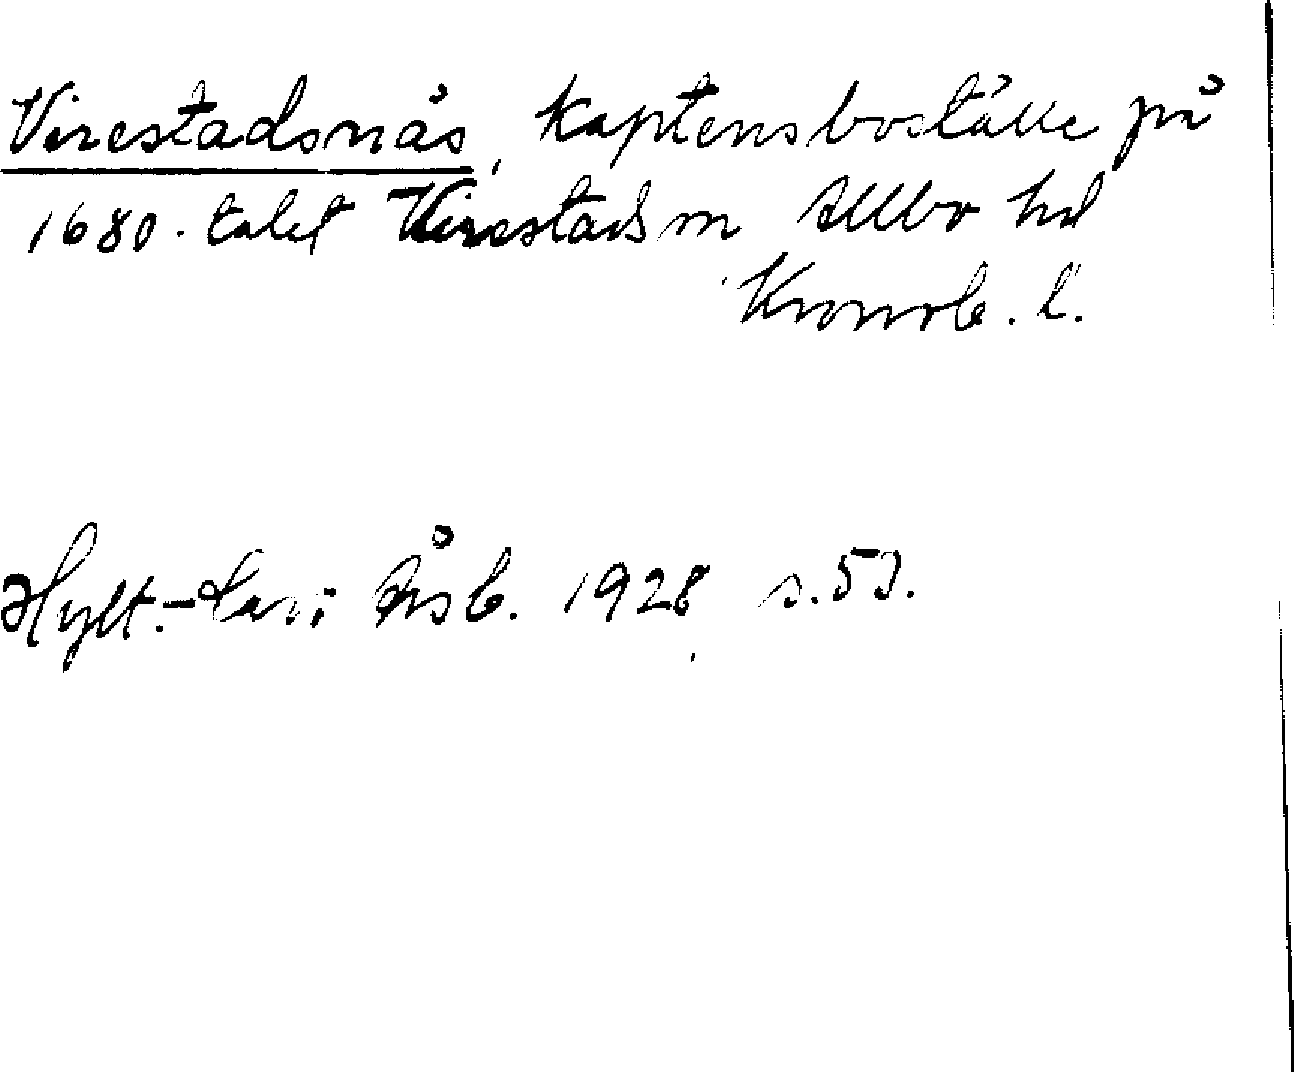 Virestadsnäs, kaptensboställe på
1680-talet Virestads sn Allbo hd
Kronob. l.
Hylt.-Cav:s Årsb. 1928 s.53.